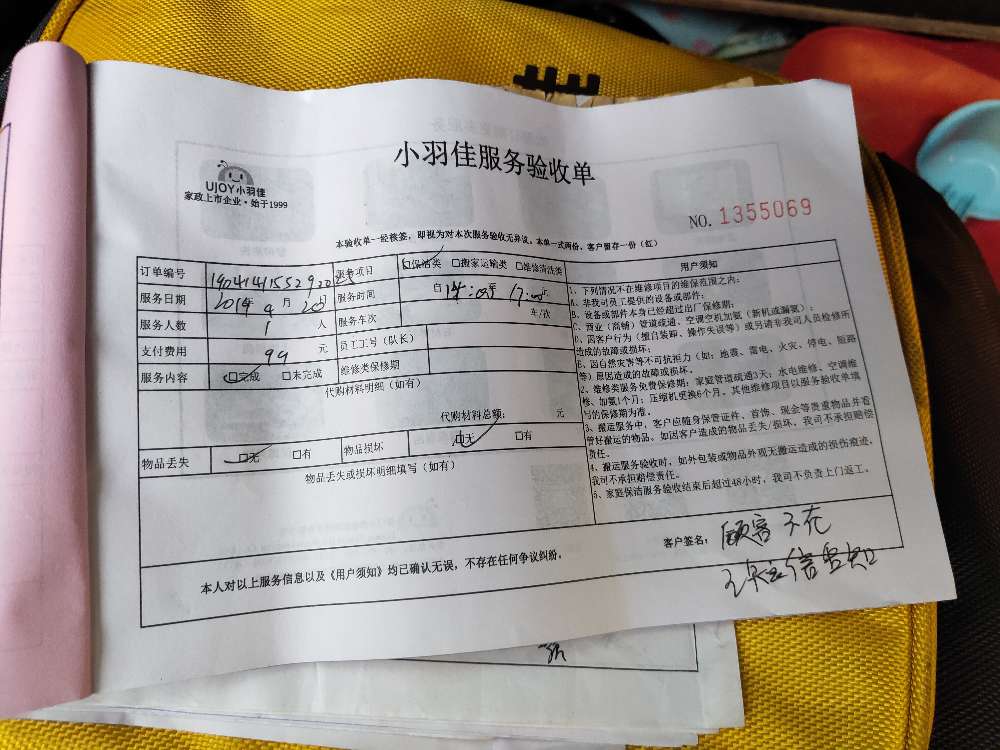 小羽佳服务验收单
UJOY小羽佳
家政上市企业·始于1999
NO. 1355069
本验收单一经核签，即视为对本次服务验收无异议。本单一式两份，客户留存一份（红）
订单编号 服务项目 保洁类 □搬家运输类 □维修清洗类
服务日期 2019年 9月 服务时间 自 17:00
服务人数 1 人 服务车次 车/次
支付费用 99 元 员工工号（队长）
服务内容 □完成 □未完成 维修类保修期
代购材料明细（如有）
代购材料总额： 元
物品丢失 □无 □有 物品损坏 □无 □有
物品丢失或损坏明细填写（如有）
用户须知
1、下列情况不在维修项目的维保范围之内：
A、非我司员工提供的设备或部件；
B、设备或部件本身已经超过出厂保修期；
C、商业（商铺）管道疏通、空调空机加氨（新机或漏氨）；
D、因客户行为（擅自装卸、操作失误等）或另请非我司人员检修所
造成的故障或损坏；
E、因自然灾害等不可抗拒力（如：地震、雷电、火灾、停电、短路
等）原因造成的故障或损坏。
2、维修类服务免费保修期：家庭管道疏通3天；水电维修、空调维
修、加氨1个月；压缩机更换6个月。其他维修项目以服务验收单填
写的保修期为准。
3、搬运服务中，客户应随身保管证件、首饰、现金等贵重物品并看
管好搬运的物品。如因客户造成的物品丢失/损坏，我司不承担赔偿
责任。
4、搬运服务验收时，如外包装或物品外观无搬运造成的损伤痕迹，
我司不承担赔偿责任。
5、家庭保洁服务验收结束后超过48小时，我司不负责上门返工。
本人对以上服务信息以及《用户须知》均已确认无误，不存在任何争议纠纷。
客户签名： 顾客不在